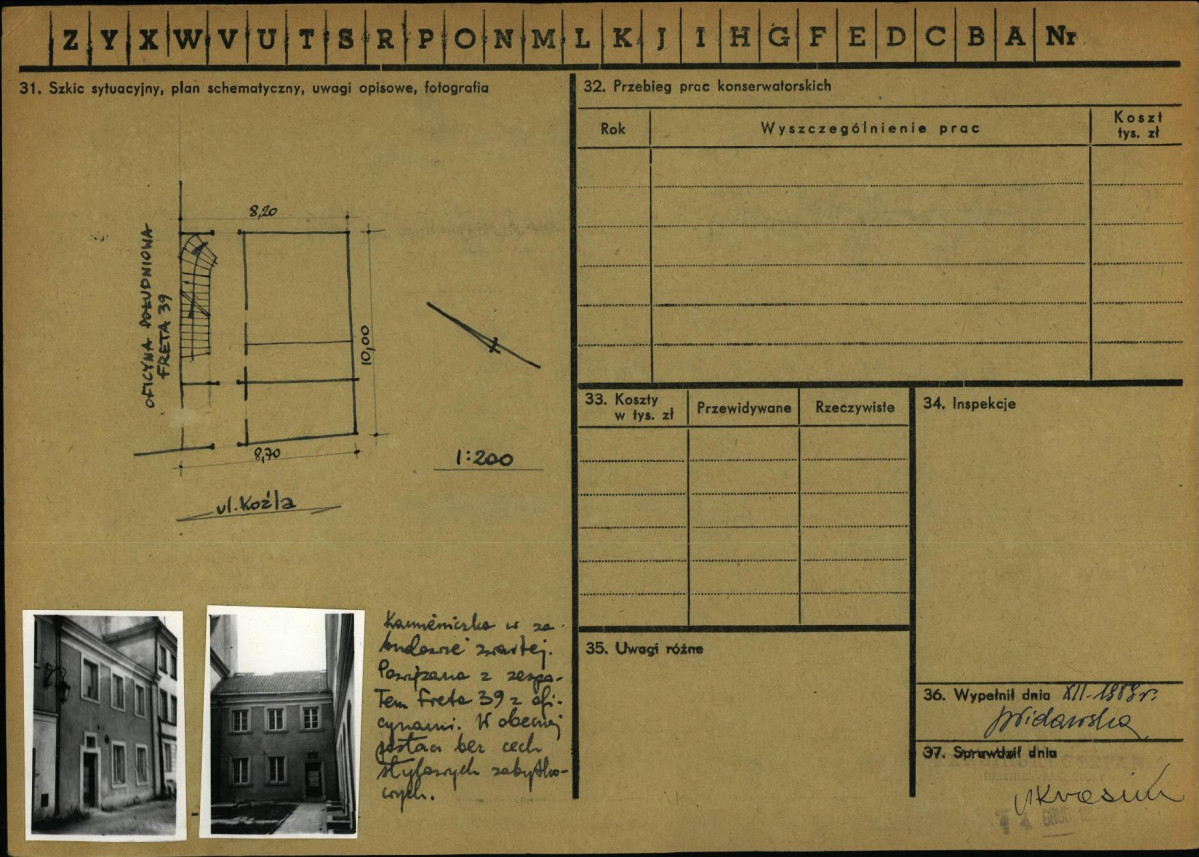 Z Y X W V U T S R P O N M L K J I H G F E D C B A Nr
31. Szkic sytuacyjny, plan schematyczny, uwagi opisowe, fotografia
8,20
OFICYNA POŁUDNIOWA
FRETA 39
10,00
8,70
1:200
ul. Koźla
Kamieniczka w za-
budowie zwartej.
Powiązana z zespo-
łem Freta 39 z ofi-
cynami. W obecnej
postaci bez cech
stylowych zabytko-
wych.
32. Przebieg prac konserwatorskich
Rok
Wyszczególnienie prac
Koszt
tys. zł
33. Koszty
w tys. zł
Przewidywane
Rzeczywiste
34. Inspekcje
35. Uwagi różne
36. Wypełnił dnia XII-1989r.
Widawska
37. Sprawdził dnia